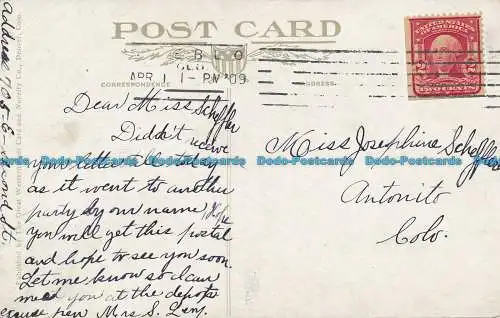 POST CARD
APR 1 1-PM '09
CORRESPONDENCE
ADDRESS
UNITED STATES
OF AMERICA
TWO CENTS
Dear Miss Scheffler
Didn't receive
your letter till today
as it went to another
party by our name
you will get this postal
and hope to see you soon.
Let me know so I can
meet you at the depot
excuse pen Mrs S.
Miss Josephine Scheffler
Antonito
Colo.
Address 705 E.
Published by The Great Western Post Card and Novelty Co., Denver, Colo.
Dodo-Postcards Dodo-Postcards Dodo-Postcards Dodo-Postcards